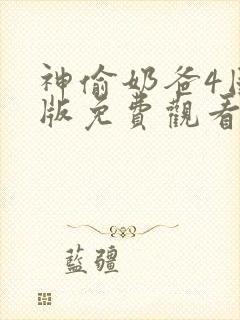 神偷奶爸4
版免費觀看
藍疆